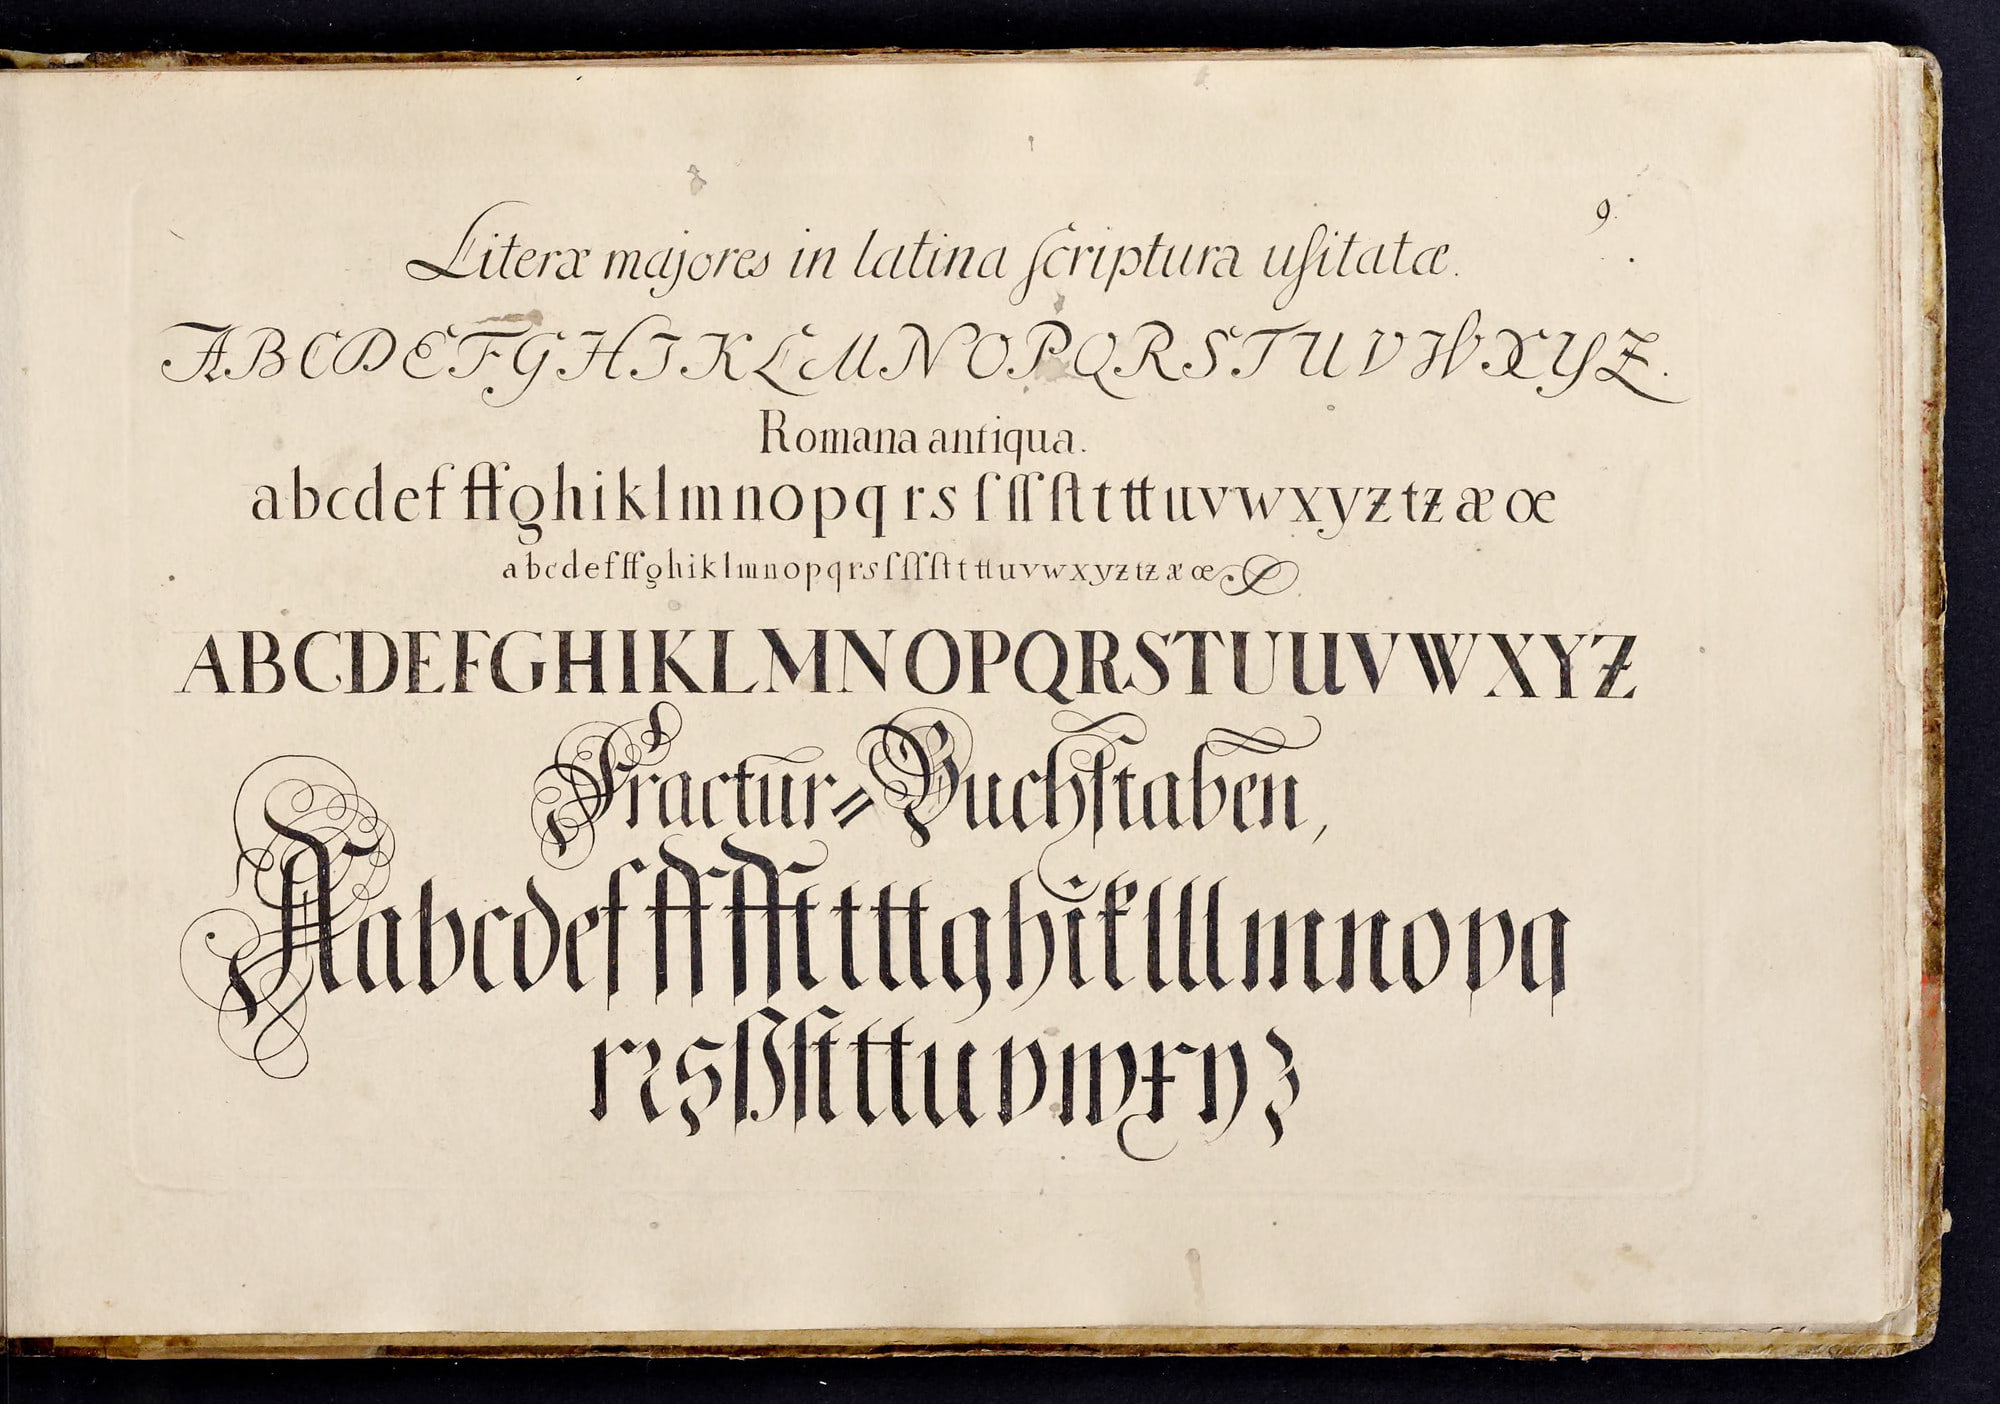 9.
Literæ majores in latina ſcriptura uſitatæ.
A B C D E F G H I K L M N O P Q R S T U V W X Y Z.
Romana antiqua.
a b c d e f ff g h i k l m n o p q r s ſ ſſ ſt t tt u v w x y z tz æ œ
a b c d e f ff g h i k l m n o p q r s ſ ſſ ſt t tt u v w x y z tz æ œ
A B C D E F G H I K L M N O P Q R S T U U V W X Y Z
Fractur⸗Buchſtaben,
A a b c d e f ff fft t tt g h i k l ll m n o p q
r ꝛ s ß ſt tt u v w x y z